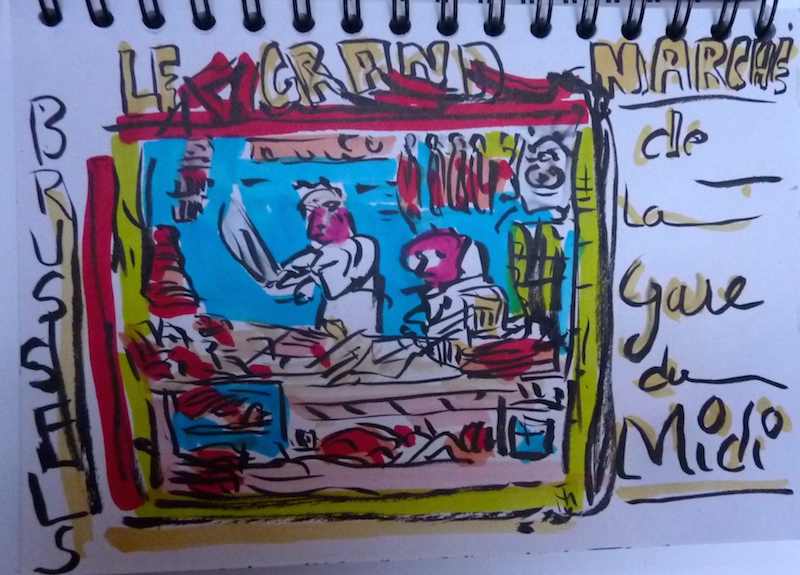 LE GRAND MARCHÉ
de
La
Gare
du
Midi
BRUSSELS